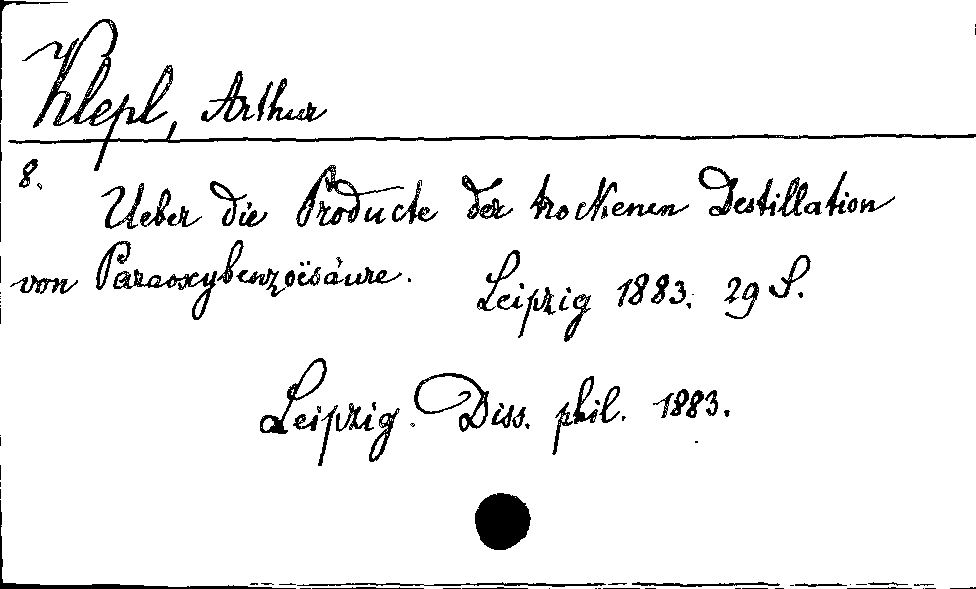 Klepl, Arthur
8.
Ueber die Producte der trockenen Destillation
von Paraoxybenzoësäure. Leipzig 1883. 29 S.
Leipzig. Diss. phil. 1883.